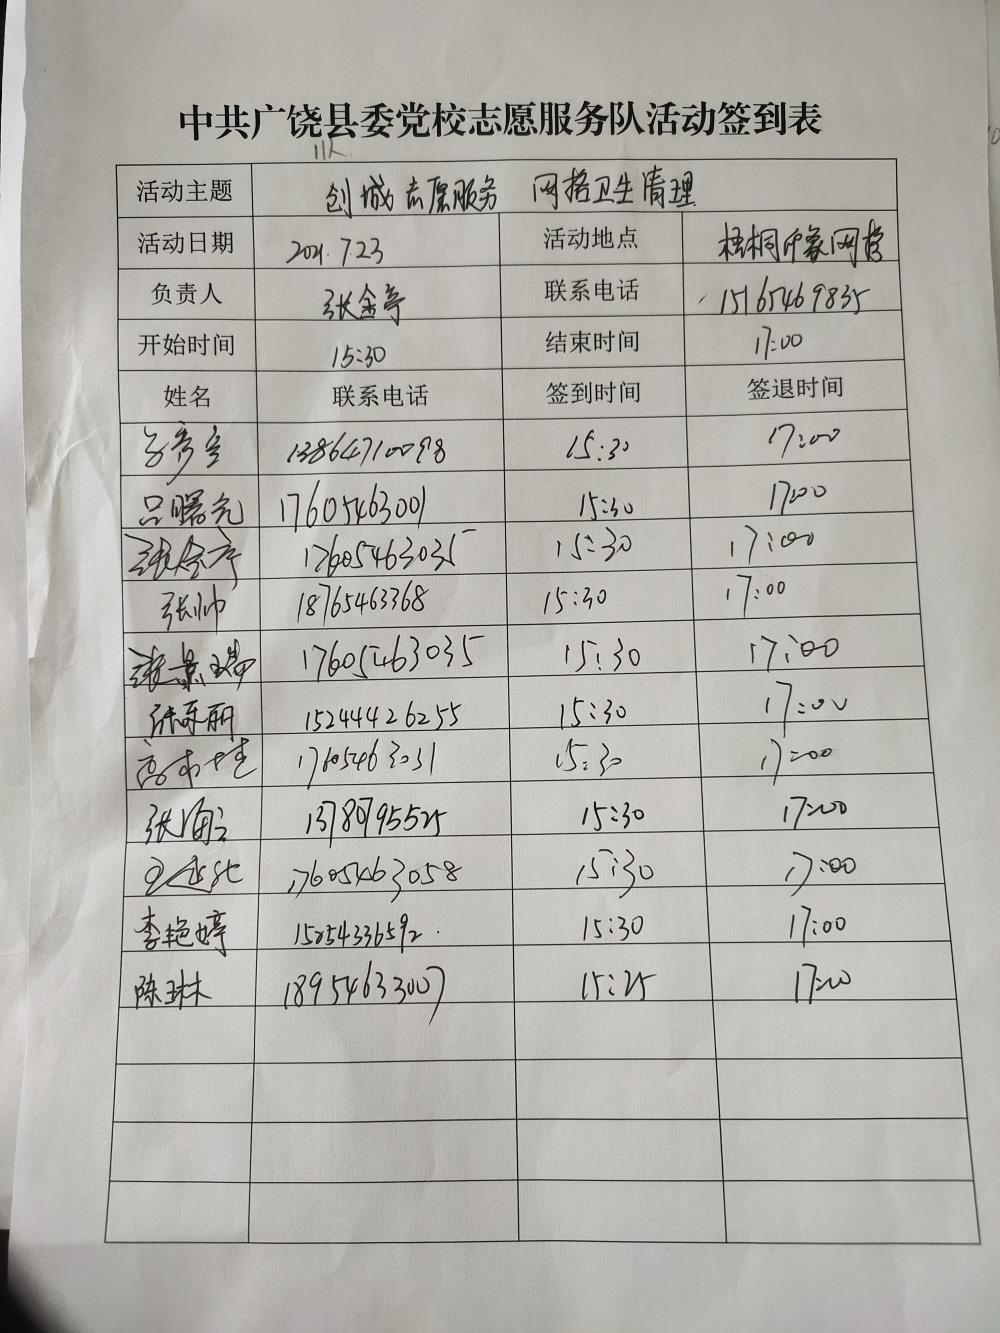 中共广饶县委党校志愿服务队活动签到表
活动主题 创城志愿服务 网格卫生清理
活动日期 2021.7.23 活动地点 梧桐印象网格
负责人 张金亭 联系电话 15165469835
开始时间 15:30 结束时间 17:00
姓名 联系电话 签到时间 签退时间
13864710098 15:30 17:00
吕曙光 17605463001 15:30 17:00
张金亭 17605463035 15:30 17:00
张帅 18765463368 15:30 17:00
张景瑞 17605463035 15:30 17:00
张乐丽 15244426255 15:30 17:00
17605463031 15:30 17:00
张海云 13780795525 15:30 17:00
17605463058 15:30 17:00
李艳婷 15254336592 15:30 17:00
陈琳 18954633007 15:25 17:00